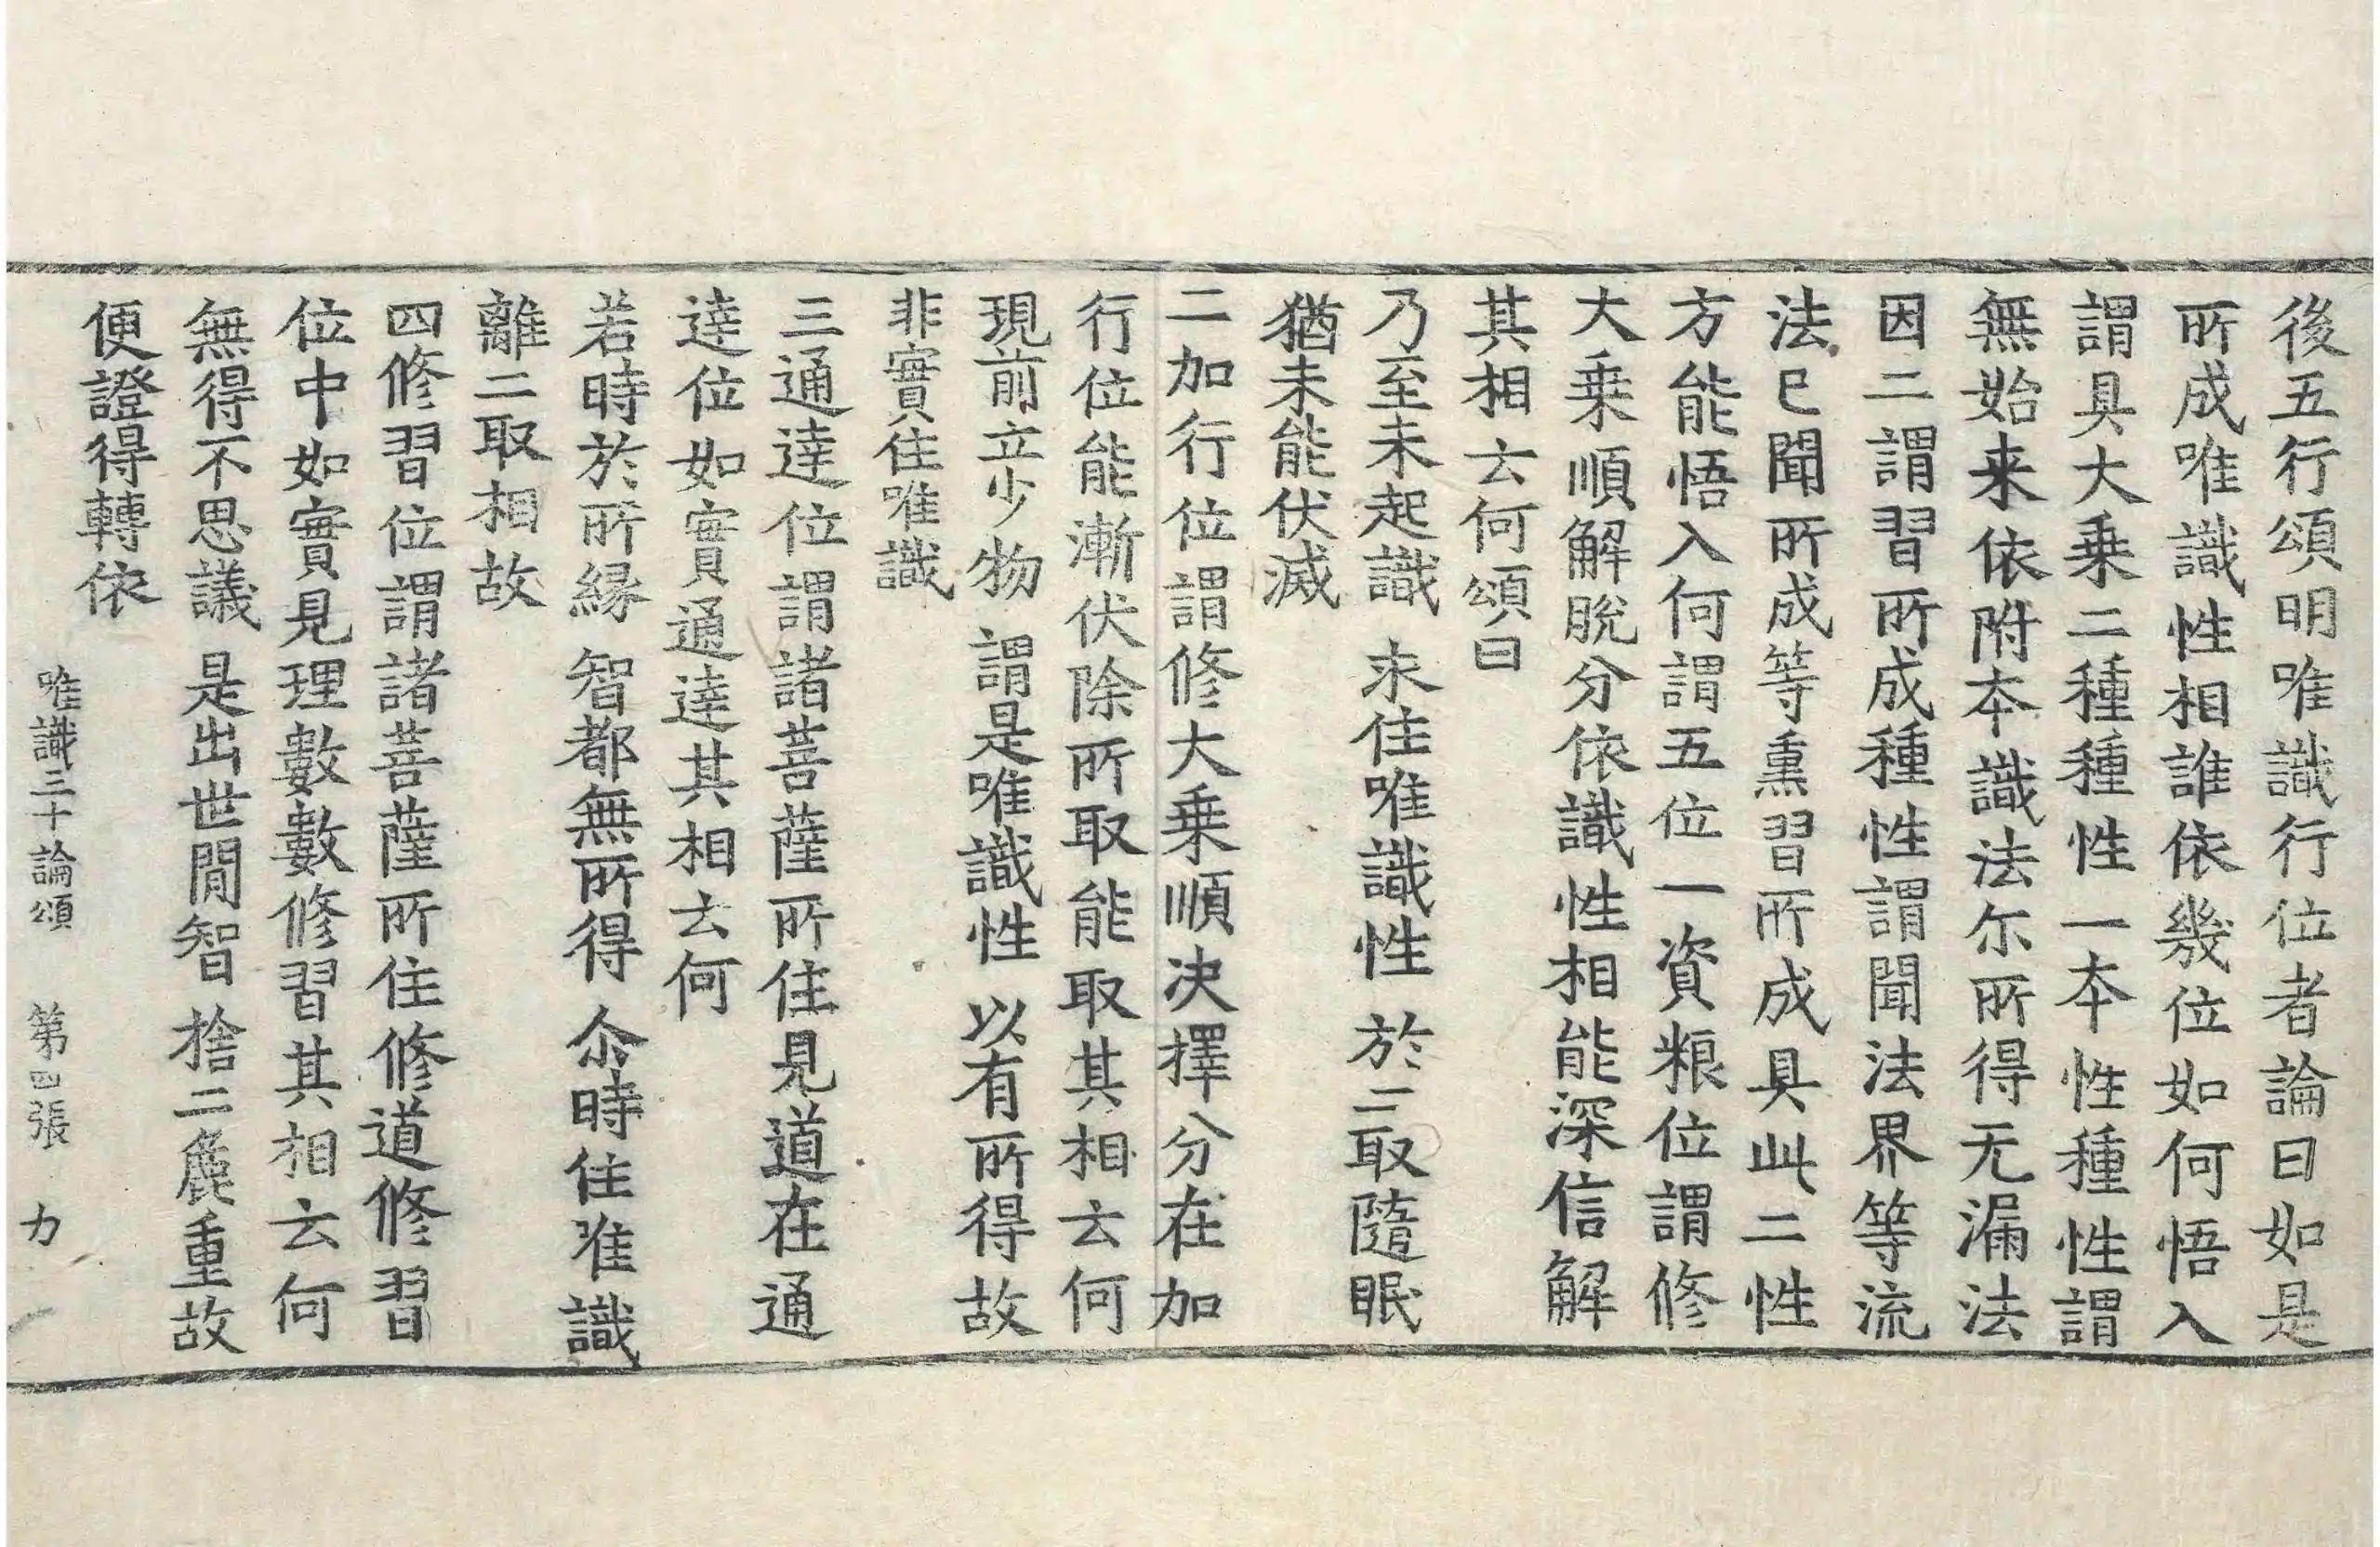 後五行頌明唯識行位者論曰如是
所成唯識性相誰依幾位如何悟入
謂具大乗二種種性一本性種性謂
無始来依附本識法尓所得无漏法
因二謂習所成種性謂聞法界等流
法已聞所成等熏習所成具此二性
方能悟入何謂五位一資粮位謂修
大乗順解脫分依識性相能深信解
其相云何頌曰
乃至未起識 求住唯識性 於二取隨眠
猶未能伏滅
二加行位謂修大乗順决擇分在加
行位能漸伏除所取能取其相云何
現前立少物 謂是唯識性 以有所得故
非實住唯識
三通達位謂諸菩薩所住見道在通
達位如實通達其相云何
若時於所縁 智都無所得 尒時住唯識
離二取相故
四修習位謂諸菩薩所住修道修習
位中如實見理數數修習其相云何
無得不思議 是出世間智 捨二麁重故
便證得轉依
唯識三十論頌 第四張 力